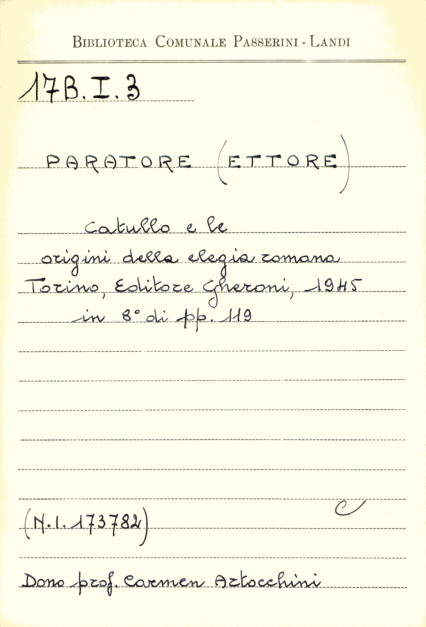 BIBLIOTECA COMUNALE PASSERINI - LANDI
17B.I.3
PARATORE (ETTORE)
Catullo e le
origini della elegia romana
Torino, Editore Gheroni, 1945
in 8° di pp. 119
C
(N.I. 173782)
Dono prof. Carmen Artocchini